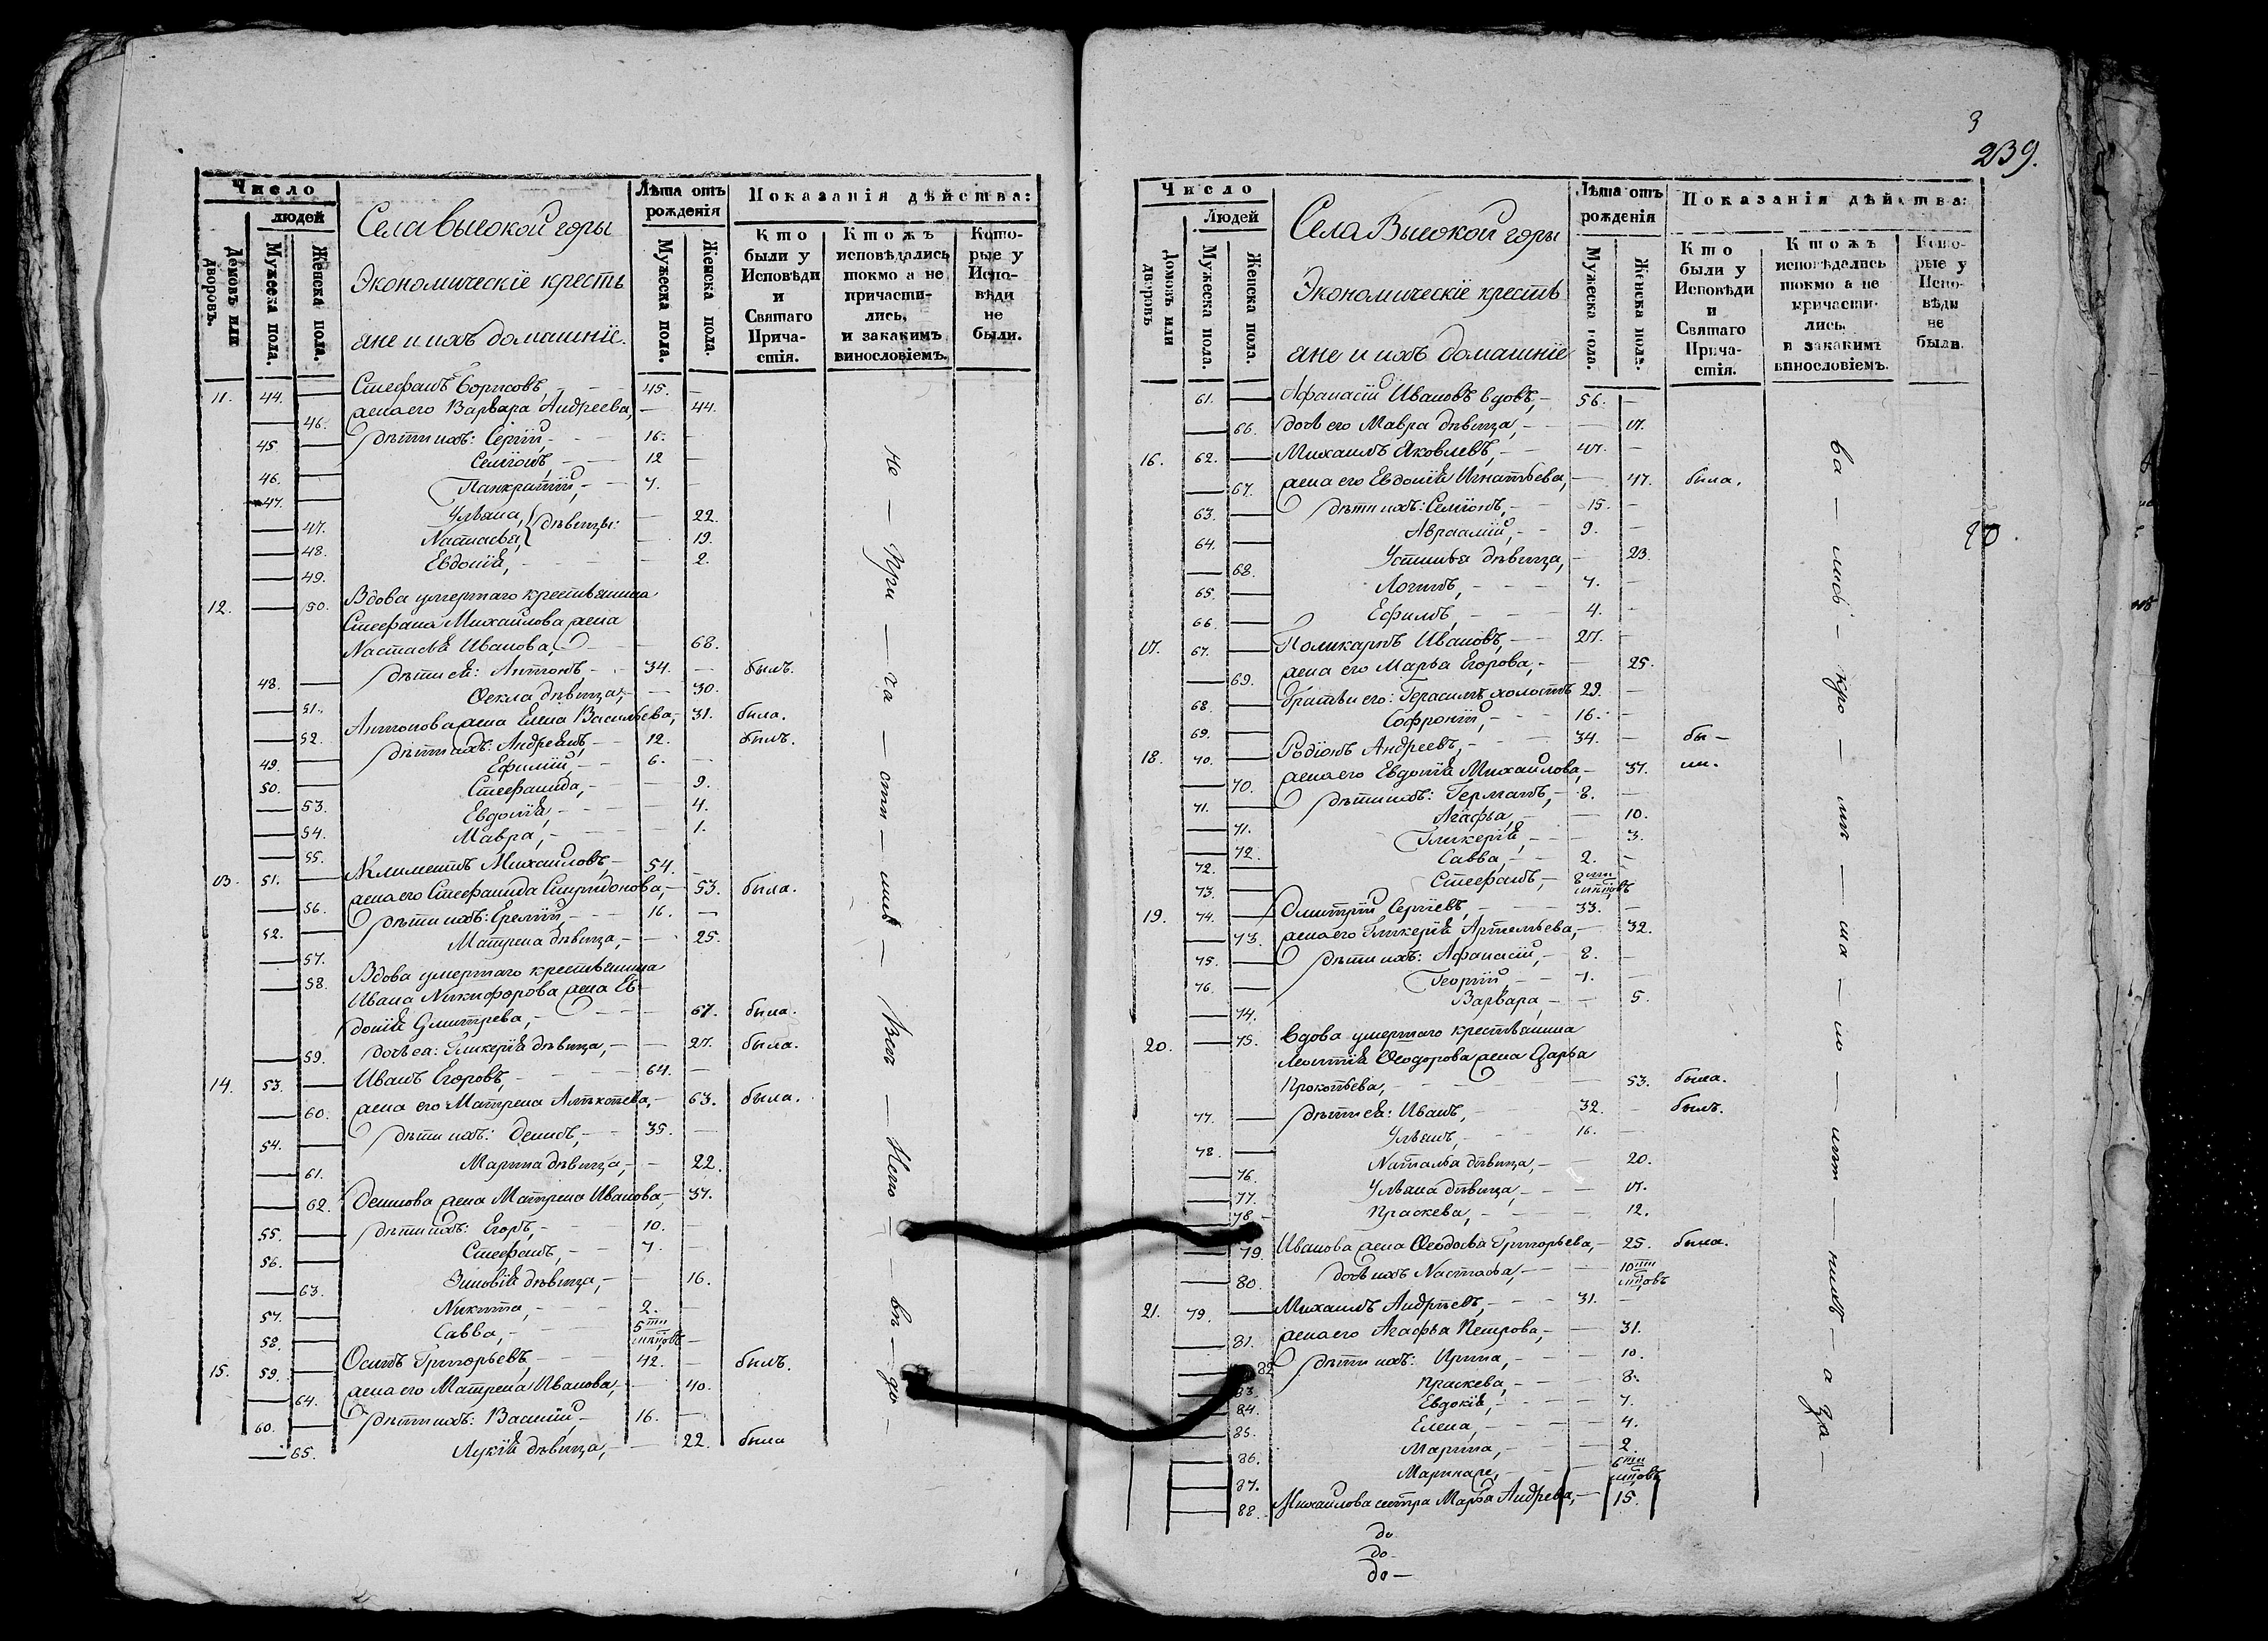 Число
людей
Домовъ или дворовъ.
Мужеска пола.
Женска пола.
Села высокой горы
Экономическіе кресть
яне и ихъ домашніе.
Лѣта отъ рожденія
Мужеска пола.
Женска пола.
Показанія дѣйства:
Кто были у Исповѣди и Святаго Прича-стія.
Ктожъ исповѣдались токмо а не причасти-лись, и закакимъ винословіемъ.
Кото-рые у Испо-вѣди не были.
11. 44. — Стефанъ Борисовъ, — 45. —
— 46. жена его Варвара Андреева, — 44.
45. — дѣти ихъ: Сергій, — 16. —
46. — Семіонъ, — 12 —
47. — Панкратій, — 7. —
— 47. Ульяна, — 22.
дѣвицы:
— 48. Настасья, — 19.
— 49. Евдокія, — 2.
12. — 50. Вдова умершаго крестьянина
Стефана Михайлова жена
Настасья Иванова, — 68.
48. — дѣти ея: Антонъ, — 34. — былъ.
— 51. Фекла дѣвица, — 30.
— 52. Антонова жена Елена Васильева, — 31. была.
49. — дѣти ихъ: Андреянъ, — 12. былъ.
50. — Ефимій, — 6. —
— 53. Стефанида, — 9.
— 54. Евдокія, — 4.
— 55. Мавра, — 1.
13. 51. — Климентъ Михайловъ, — 54. —
— 56. жена его Стефанида Спиридонова, — 53. была.
52. — дѣти ихъ: Еремій, — 16. —
— 57. Матрена дѣвица, — 25.
— 58. Вдова умершаго крестьянина
Ивана Никифорова жена Ев-
докія Дмитрева, — 67. была.
— 59. дочь ея: Гликерія дѣвица, — 27. была.
14. 53. — Иванъ Егоровъ, — 64. —
— 60. жена его Матрена — 63. была.
54. — дѣти ихъ: Денисъ, — 35. —
— 61. Марина дѣвица, — 22.
— 62. Денисова жена Матрена Иванова, — 37.
55. — дѣти ихъ: Егоръ, — 10. —
56. — Стефанъ, — 7. —
— 63. Зиновія дѣвица, — 16.
57. — Никита, — 2. —
58. — Савва, — 5ти мѣсяцовъ —
15. 59. — Осипъ Григорьевъ, — 42. — былъ.
— 64. жена его Матрена Иванова, — 40.
60. — дѣти ихъ: Василій, — 16. —
— 65. Лукія дѣвица, — 22. была
не — при — ча — сти — лись — Всего — въ — до —
3
239.
Число
Людей
Домовъ или дворовъ
Мужеска пола.
Женска пола.
Села Высокой горы
Экономическіе кресть
яне и ихъ домашніе
Лѣта отъ рожденія
Мужеска пола.
Женска пола.
Показанія дѣйства:
Кто были у Исповѣди и Святаго Прича-стія.
Ктожъ исповѣдались токмо а не причасти-лись, и закакимъ винословіемъ.
Кото-рые у Испо-вѣди не были.
61. — Афанасій Ивановъ вдовъ, — 56. —
— 66. дочь его Мавра дѣвица, — 17.
16. 62. — Михаилъ Яковлевъ, — 47. —
— 67. жена его Евдокія Игнатьева, — 47. была.
63. — дѣти ихъ: Семіонъ, — 15. —
64. — Авраамій, — 9. —
— 68. Устинья дѣвица, — 23.
65. — Логинъ, — 7. —
66. — Ефимъ, — 4. —
17. 67. — Поликарпъ Ивановъ, — 27. —
— 69. жена его Марья Егорова, — 25.
68. — братьи его: Герасимъ холостъ 29. —
69. — Софроній, — 16. —
18. 70. — Родіонъ Андреевъ, — 34. — бы —
— 70. жена его Евдокія Михайлова, — 37. ли.
71. — дѣти ихъ: Германъ, — 8. —
— 71. Агафья, — 10.
— 72. Гликерія, — 3.
72. — Савва, — 2. —
73. — Стефанъ, — 8ми мѣсяцовъ
19. 74. — Дмитрій Сергіевъ, — 33. —
— 73. жена его Гликерія Артемьева, — 32.
75. — дѣти ихъ: Афанасій, — 8. —
76. — Георгій, — 1. —
— 74. Варвара, — 5.
20. — 75. вдова умершаго крестьянина
Леонтія Феодорова жена Дарья
Прокопьева, — 53. была.
77. — дѣти ея: Иванъ, — 32. — былъ.
78. — Ульянъ, — 16. —
— 76. Наталья дѣвица, — 20.
— 77. Ульяна дѣвица, — 17.
— 78. Праскева, — 12.
— 79. Иванова жена Феодосья Григорьева, — 25. была.
— 80. дочь ихъ Настасья, — 10ти мѣсяцовъ
21. 79. — Михаилъ Андреевъ, — 31. —
— 81. жена его Агафья Петрова, — 31.
— 82 дѣти ихъ: Ирина, — 10.
— 83. Праскева, — 8.
— 84. Евдокія, — 7.
— 85. Елена, — 4.
— 86. Марина, — 2.
— 87. — 6ти мѣсяцовъ
— 88. Михайлова сестра Марья Андрева, — 15.
ва — лись — кро — мѣ — ма — ло — лѣт — нихъ — а за —
до
до
до —